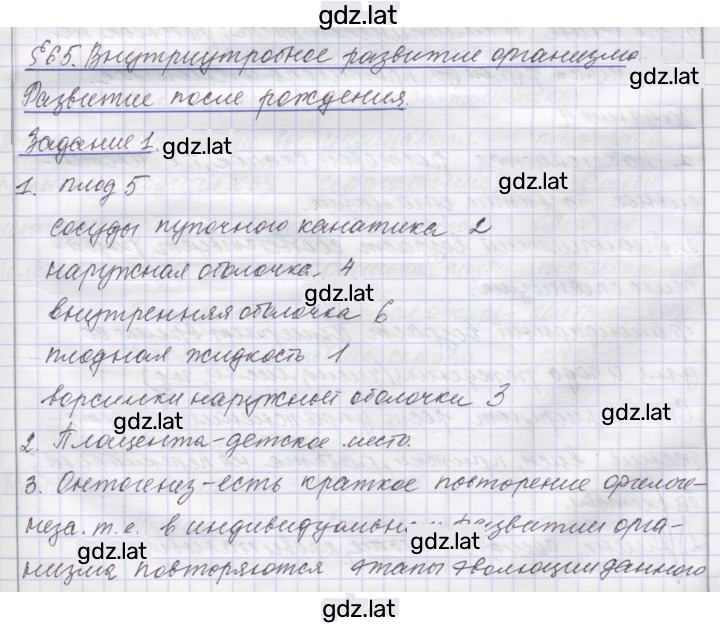 gdz.lat
§65. Внутриутробное развитие организма.
gdz.lat
Развитие после рождения.
Задание 1. gdz.lat
1. плод 5
gdz.lat
сосуды пупочного канатика 2
наружная оболочка 4
gdz.lat
внутренняя оболочка 6
плодная жидкость 1
ворсинки наружной оболочки 3
gdz.lat
gdz.lat
2. Плацента-детское место.
3. Онтогенез-есть краткое повторение филоге-
неза. т.е. в индивидуальном развитии орга-
gdz.lat
gdz.lat
низма повторяются этапы эволюции данного
gdz.lat